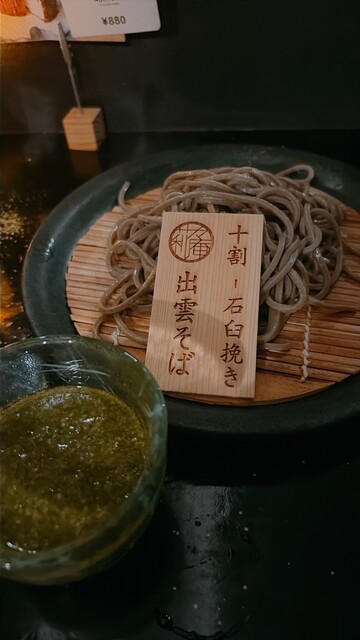 ¥880
十割－石臼挽き
出雲そば